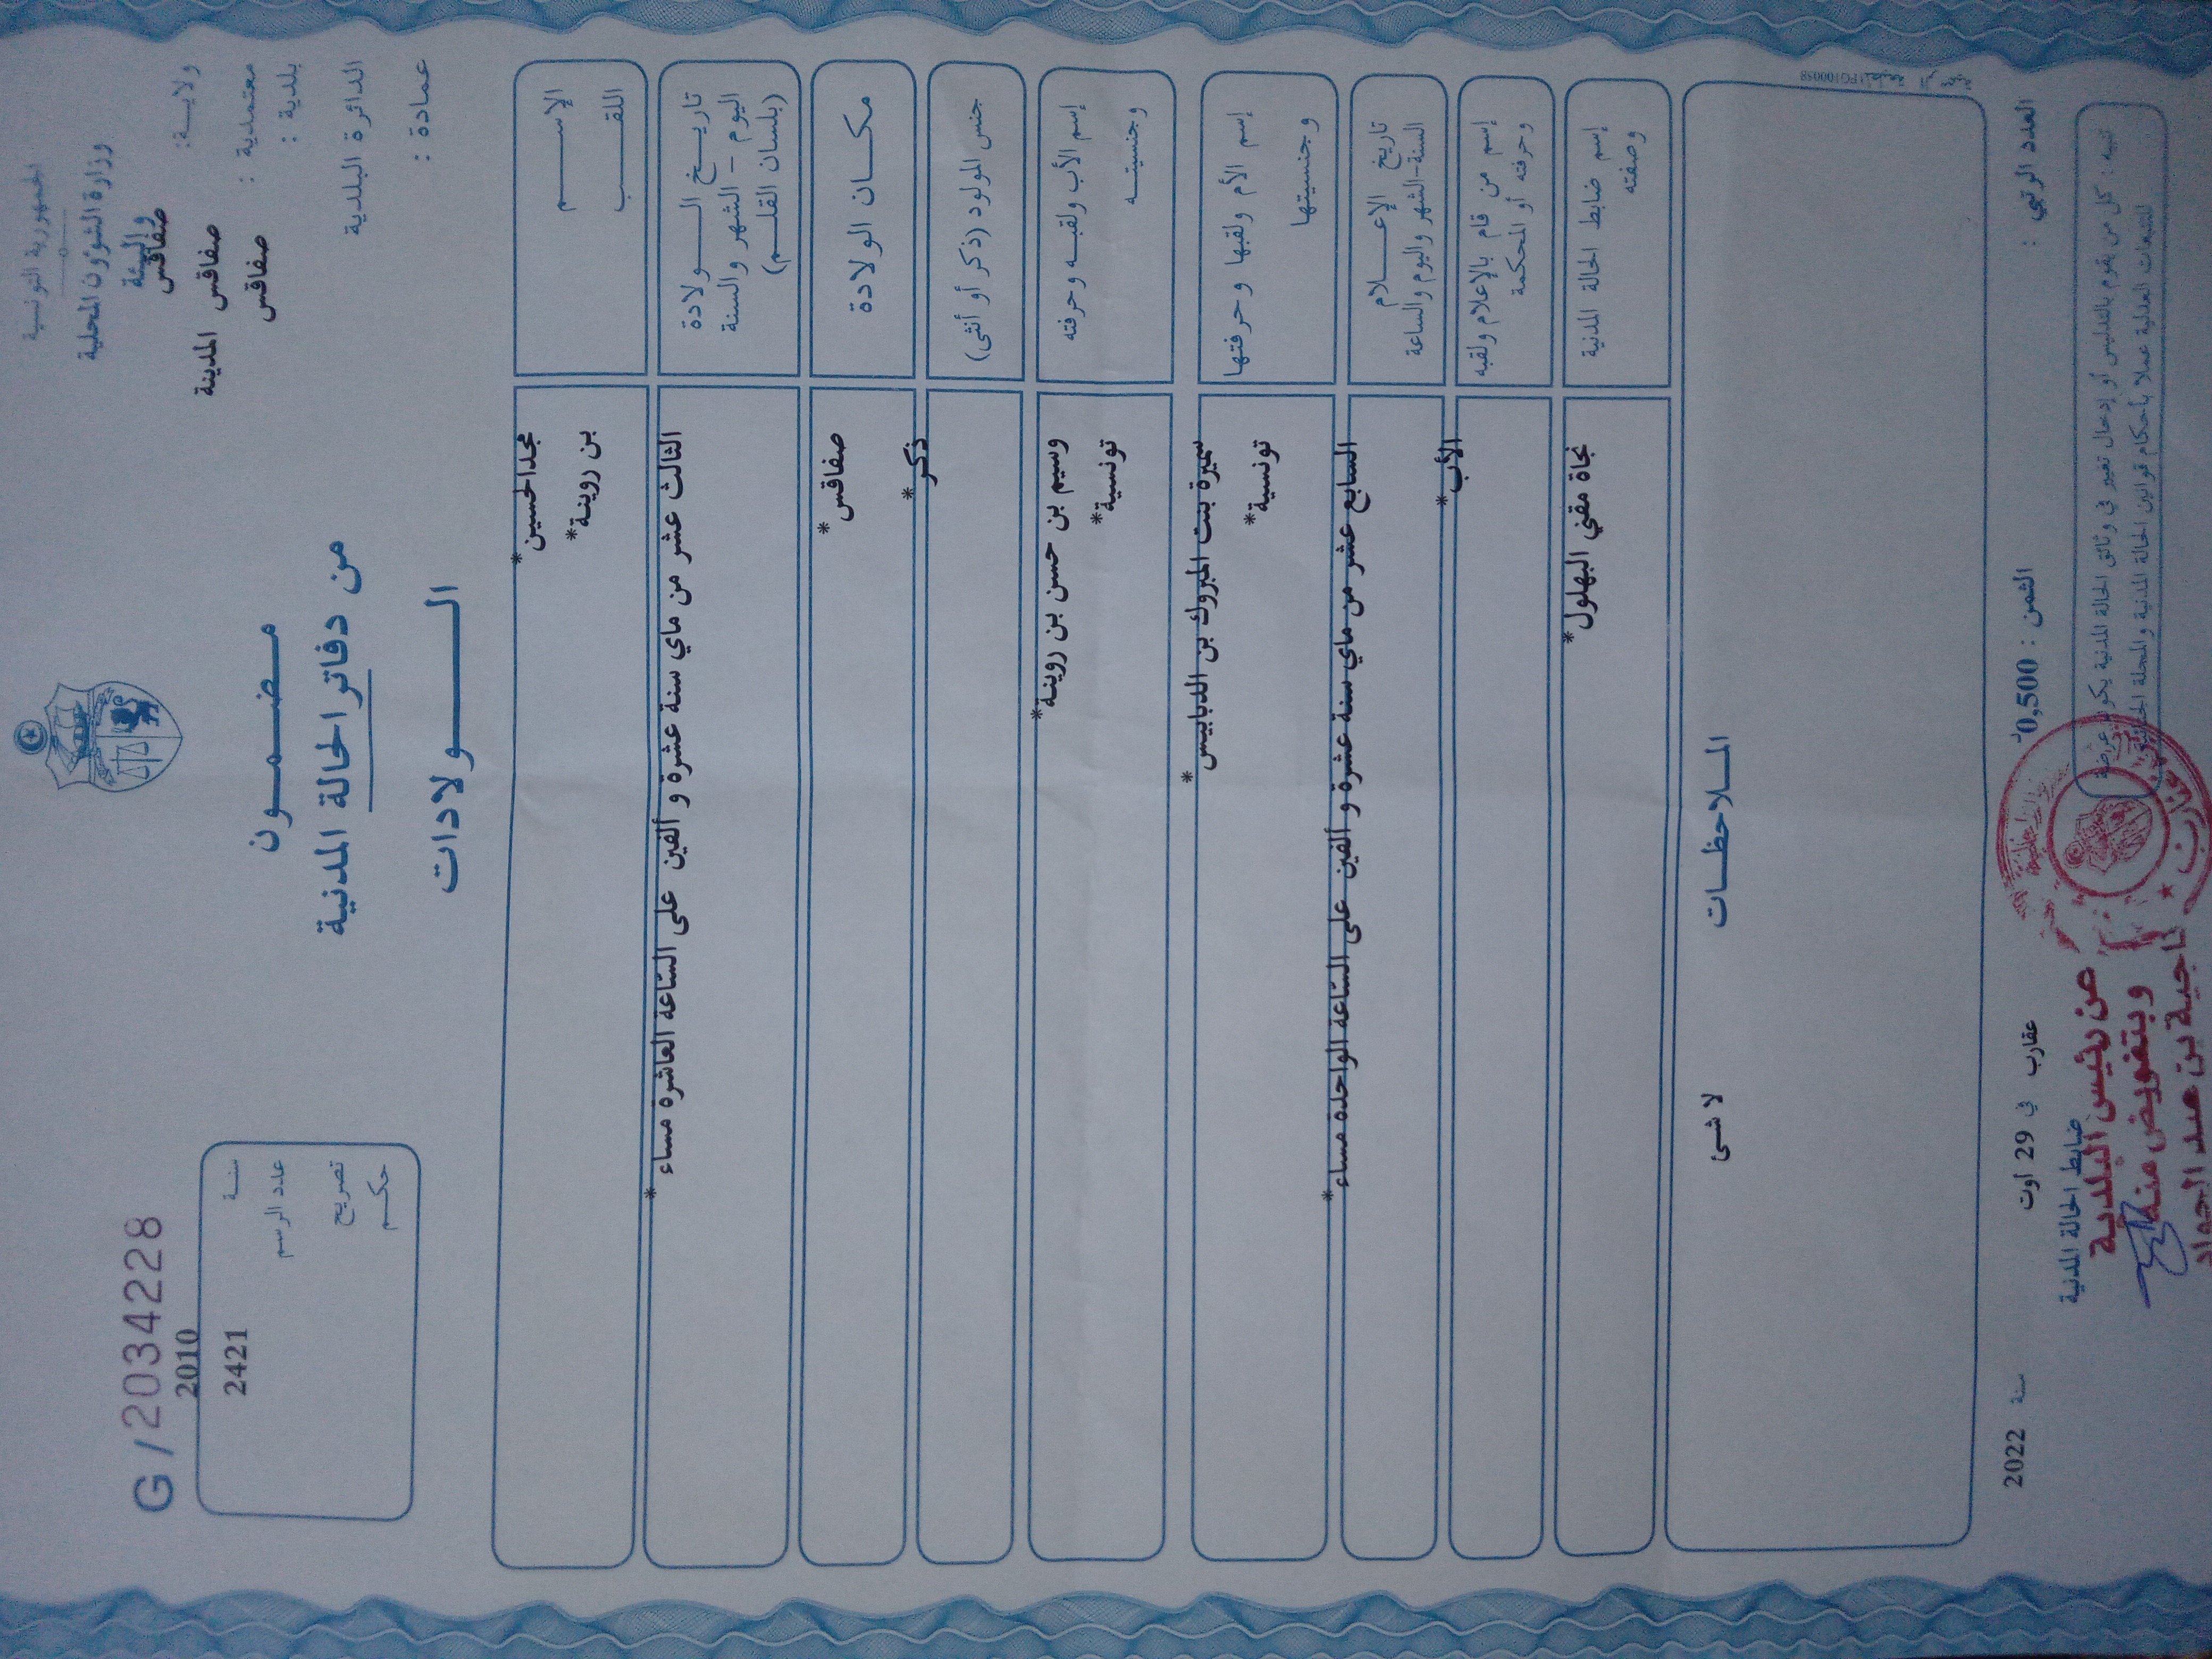 الجمهورية التونسية
وزارة الشؤون المحلية
والبيئة
ولايـــة: صفاقس
معتمدية : صفاقس المدينة
بلدية : صفاقس
الدائرة البلدية
عمادة :
مـــضـــمـــون
من دفاتر الحالة المدنية
الــــــولادات
G / 2034228
سنـــة 2010
عدد الرسم 2421
تصريح
حكـــم
الإســـــــم
اللقـــــب
مجدالحسين*
بن روينة*
تاريـــخ الـــــولادة
اليوم - الشهر والسنة
(بلسان القلـــم)
الثالث عشر من ماي سنة عشرة و ألفين على الساعة العاشرة مساء*
مكـــان الولادة
صفاقس*
جنس المولود (ذكر أو أنثى)
ذكر*
إسم الأب ولقبـــه وحرفته
وجنسيتـــه
وسيم بن حسن بن روينة*
تونسية*
إسم الأم ولقبها وحرفتها
وجنسيتها
سميرة بنت المبروك بن الدبابيس*
تونسية*
تاريخ الإعـــلام
السنة-الشهر واليوم والساعة
السابع عشر من ماي سنة عشرة و ألفين على الساعة الواحدة مساء*
إسم من قام بالإعلام ولقبه
وحرفته أو المحكمة
الأب*
إسم ضابط الحالة المدنية
وصفته
نجاة مقني البهلول*
المـــلاحظـــات
لا شئ
العدد الرتبي :
الثمن : 0,500د
عقارب في 29 اوت سنة 2022
ضابط الحالة المدنية
تنبيه : كل من يقوم بالتدليس أو إدخال تغيير في وثائق الحالة المدنية يكون عرضة
للتتبعات العدلية عملا بأحكام قوانين الحالة المدنية والمجلة
عقارب
عن رئيس البلدية
وبتفويض منه
ناجية بن عبد الجواد